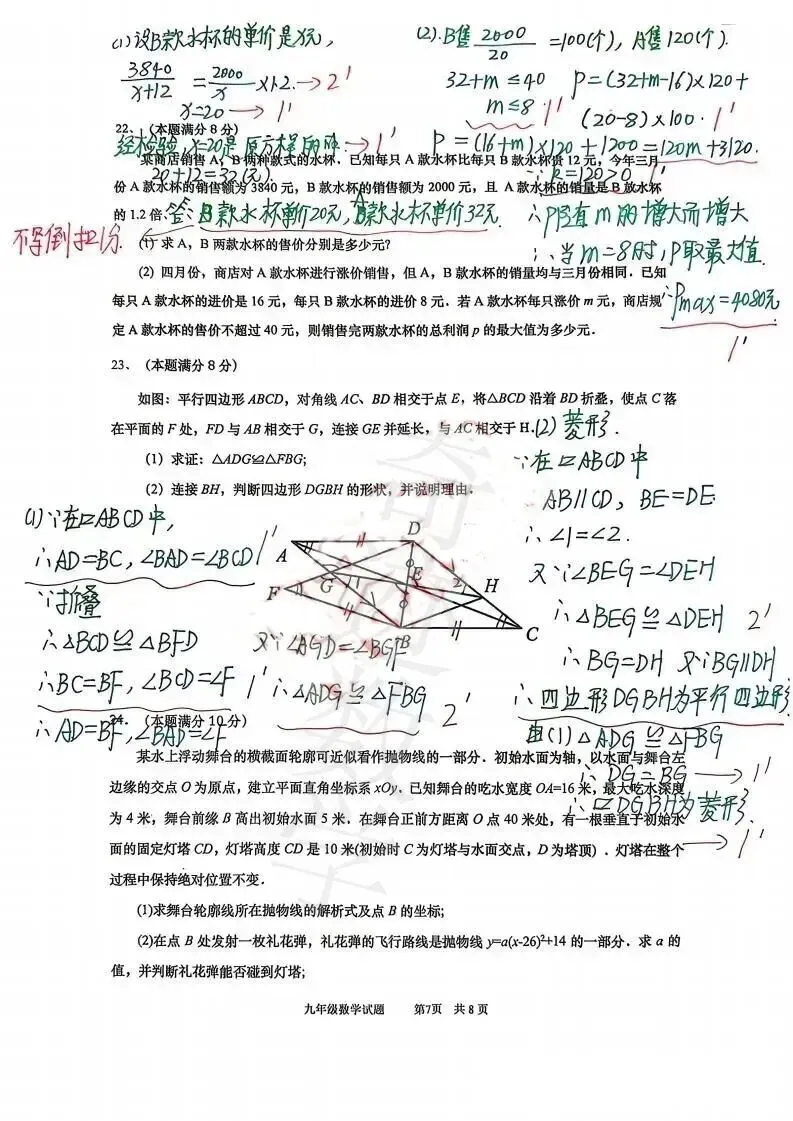 (1) 设B款水杯的单价是x元,
3840/(x+12) = 2000/x ×1.2 → 2'
x=20 → 1'
(2). B售 2000/20 =100(个), A售120(个).
32+m≤40 P=(32+m-16)×120+
m≤8 1' (20-8)×100. 1'
P=(16+m)×120+1200=120m+3120.
∵k=120>0 1'
∴P随m的增大而增大
∴当m=8时, P取最大值
∴Pmax=4080元
1'
22. (本题满分 8 分)
经检验, x=20是原方程的解. → 1'
某商店销售 A, B 两种款式的水杯. 已知每只 A 款水杯比每只 B 款水杯贵 12 元, 今年三月
20+12=32(元)
份 A 款水杯的销售额为 3840 元, B 款水杯的销售额为 2000 元, 且 A 款水杯的销量是 B 款水杯
的 1.2 倍.
答: B款水杯单价20元, A款水杯单价32元.
不答倒扣1分.
(1) 求 A, B 两款水杯的售价分别是多少元?
(2) 四月份, 商店对 A 款水杯进行涨价销售, 但 A, B 款水杯的销量均与三月份相同. 已知
每只 A 款水杯的进价是 16 元, 每只 B 款水杯的进价 8 元. 若 A 款水杯每只涨价 m 元, 商店规
定 A 款水杯的售价不超过 40 元, 则销售完两款水杯的总利润 p 的最大值为多少元.
23、(本题满分 8 分)
如图: 平行四边形 ABCD, 对角线 AC、BD 相交于点 E, 将△BCD 沿着 BD 折叠, 使点 C 落
在平面的 F 处, FD 与 AB 相交于 G, 连接 GE 并延长, 与 AC 相交于 H.
(1) 求证: △ADG≌△FBG;
(2) 连接 BH, 判断四边形 DGBH 的形状, 并说明理由.
(1)∵在▱ABCD中,
∴AD=BC, ∠BAD=∠BCD 1'
∵折叠
∴△BCD≌△BFD
∴BC=BF, ∠BCD=∠F 1'
∴AD=BF, ∠BAD=∠F
又∵∠AGD=∠BGF
∴△ADG≌△FBG 2'
A
D
F
G
E
H
B
C
1
2
(2) 菱形.
∵在▱ABCD中
AB∥CD, BE=DE
∴∠1=∠2.
又∵∠BEG=∠DEH
∴△BEG≌△DEH 2'
∴BG=DH 又∵BG∥DH
∴四边形DGBH为平行四边形
由(1)△ADG≌△FBG
∴DG=BG → 1'
∴▱DGBH为菱形.
→ 1'
24. (本题满分 10 分)
某水上浮动舞台的横截面轮廓可近似看作抛物线的一部分. 初始水面为轴, 以水面与舞台左
边缘的交点 O 为原点, 建立平面直角坐标系 xOy. 已知舞台的吃水宽度 OA=16 米, 最大吃水深度
为 4 米, 舞台前缘 B 高出初始水面 5 米. 在舞台正前方距离 O 点 40 米处, 有一根垂直于初始水
面的固定灯塔 CD, 灯塔高度 CD 是 10 米(初始时 C 为灯塔与水面交点, D 为塔顶) . 灯塔在整个
过程中保持绝对位置不变.
(1)求舞台轮廓线所在抛物线的解析式及点 B 的坐标;
(2)在点 B 处发射一枚礼花弹, 礼花弹的飞行路线是抛物线 y=a(x-26)²+14 的一部分. 求 a 的
值, 并判断礼花弹能否碰到灯塔;
九年级数学试题 第7页 共 8 页